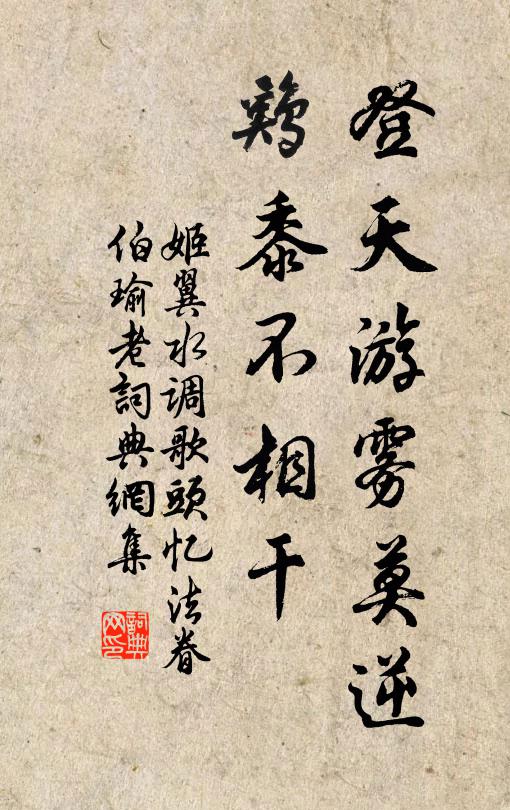 登天游雾莫逆
鷄黍不相干
姬翼水调歌頭忆法眷
伯瑜老詞典網集
詞典网印